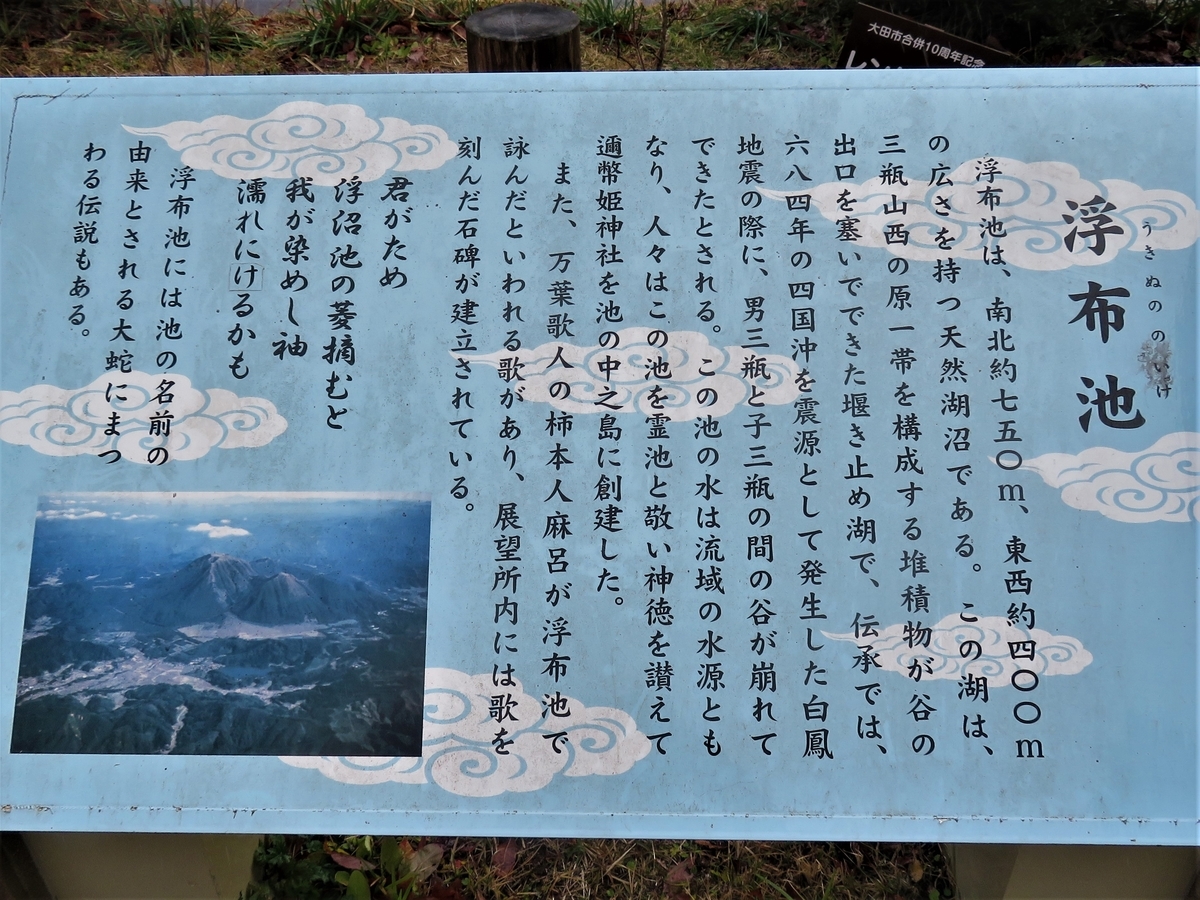 大田市合併10周年記念
浮布池
うきぬのの いけ
浮布池は、南北約七五〇m、東西約四〇〇m
の広さを持つ天然湖沼である。この湖は、
三瓶山西の原一帯を構成する堆積物が谷の
出口を塞いでできた堰き止め湖で、伝承では、
六八四年の四国沖を震源として発生した白鳳
地震の際に、男三瓶と子三瓶の間の谷が崩れて
できたとされる。この池の水は流域の水源とも
なり、人々はこの池を霊池と敬い神徳を讃えて
邇幣姫神社を池の中之島に創建した。
また、万葉歌人の柿本人麻呂が浮布池で
詠んだといわれる歌があり、展望所内には歌を
刻んだ石碑が建立されている。
君がため
浮沼池の菱摘むと
我が染めし袖
濡れにけるかも
浮布池には池の名前の
由来とされる大蛇にまつ
わる伝説もある。